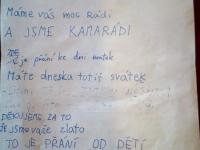 Máme vás moc rádi
A JSME KAMARÁDI
ZDE
je přání ke dni svátek
Máte dneska totiž svátek
DĚKUJEME ZA TO
ŽE jsme vaše zlato
TO JE PŘÁNÍ OD DĚTÍ